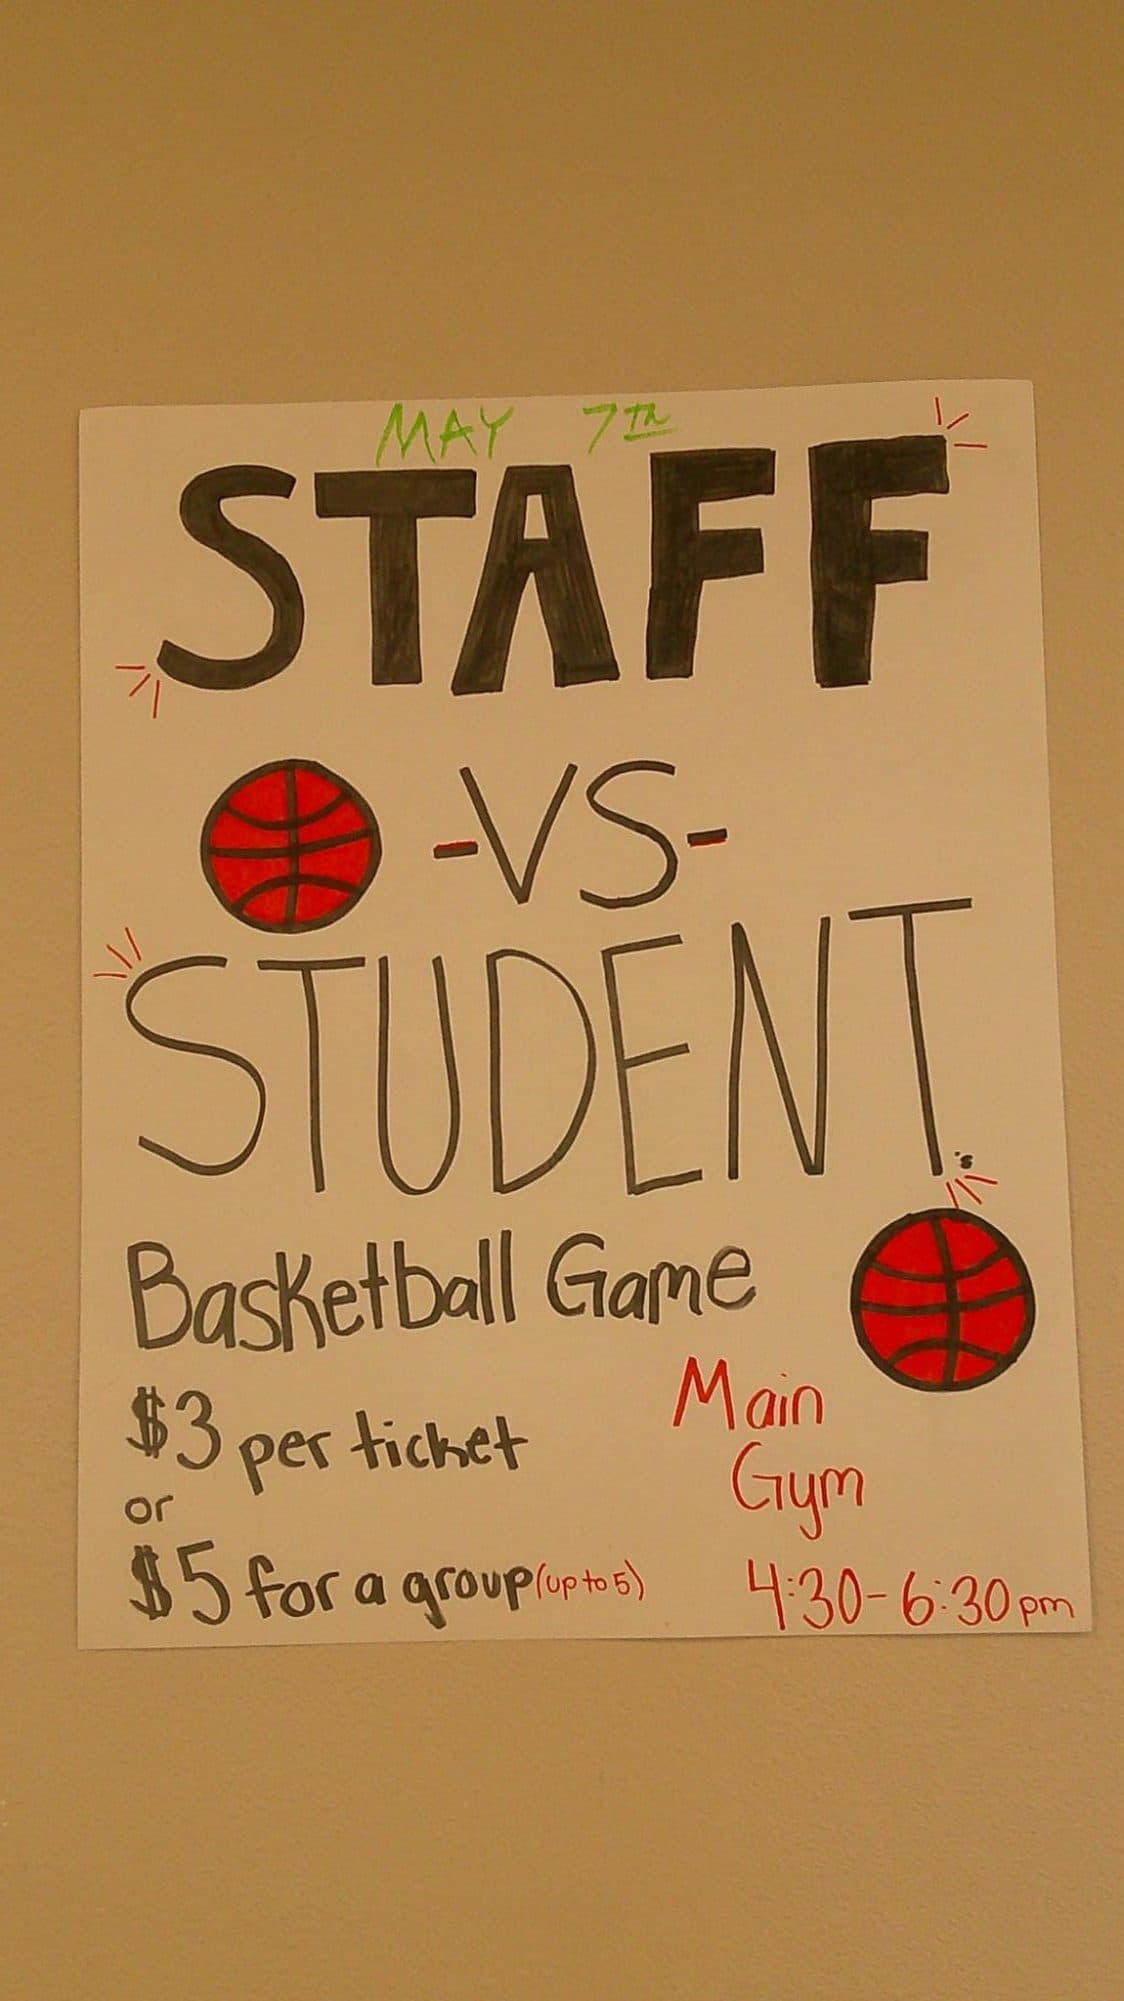 MAY 7TH
STAFF
-VS-
STUDENT's
Basketball Game
$3 per ticket
or
$5 for a group (up to 5)
Main
Gym
4:30-6:30pm